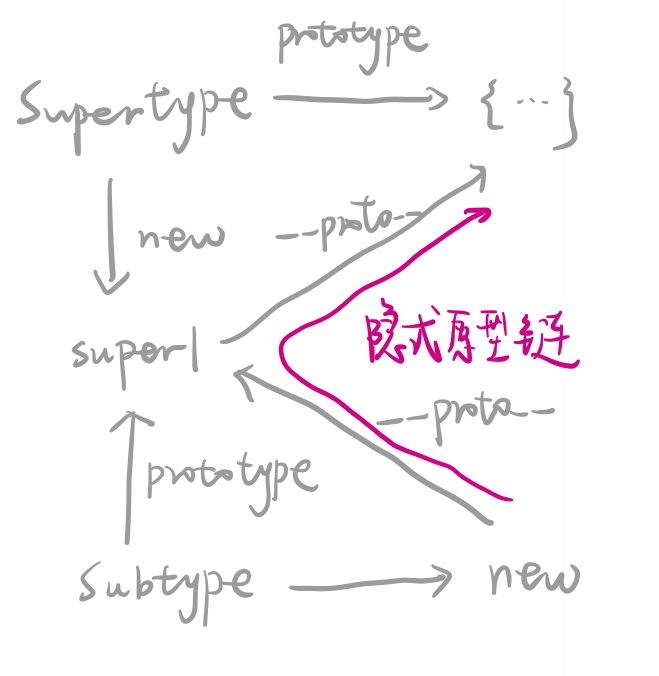 prototype
Supertype
{ ... }
new
__proto__
super1
隐式原型链
__proto__
prototype
Subtype
new